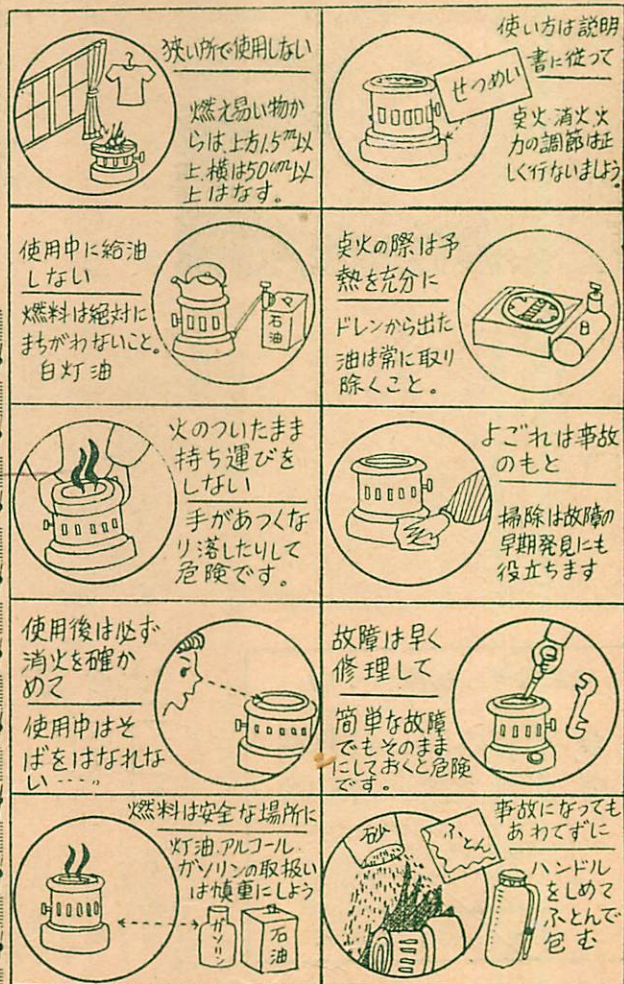 狭い所で使用しない
燃え易い物か
らは、上方1.5m以
上、横は50cm以
上はなす。
使い方は説明
書に従って
せつめい
点火、消火、火
力の調節は正
しく行ないましよう。
使用中に給油
しない
燃料は絶対に
まちがわないこと。
白灯油
石油
点火の際は予
熱を充分に
ドレンから出た
油は常に取り
除くこと。
火のついたまま
持ち運びを
しない
手があつくな
り落したりして
危険です。
よごれは事故
のもと
掃除は故障の
早期発見にも
役立ちます
使用後は必ず
消火を確か
めて
使用中はそ
ばをはなれな
い‥‥。
故障は早く
修理して
簡単な故障
でもそのまま
にしておくと危険
です。
燃料は安全な場所に
灯油、アルコール、
ガソリンの取扱い
は慎重にしよう
ガソリン
石油
事故になっても
あわてずに
砂
ふとん
ハンドル
をしめて
ふとんで
包む